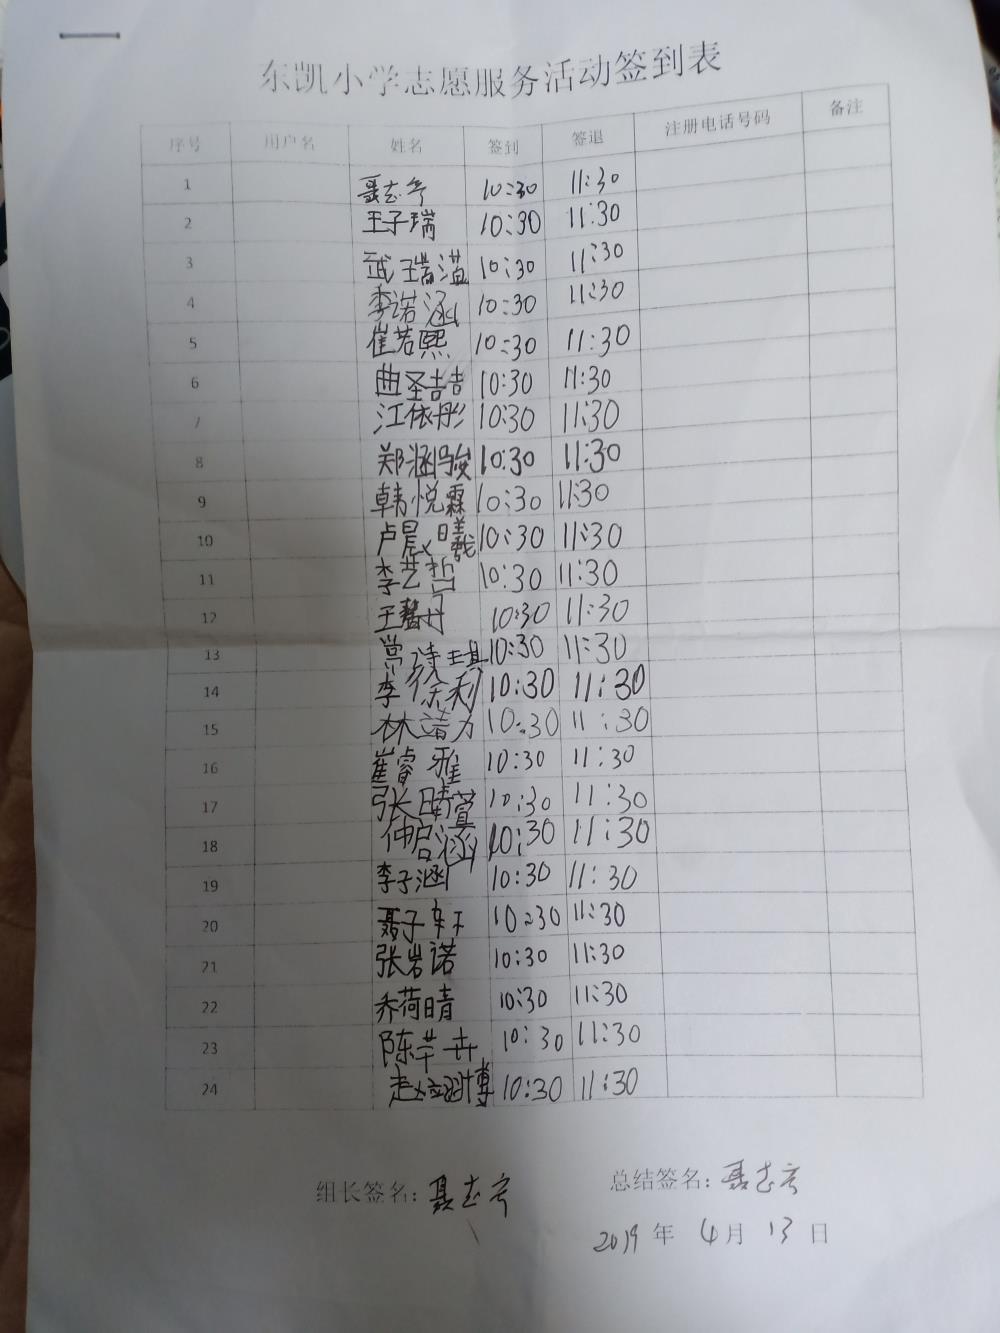 东凯小学志愿服务活动签到表
序号 用户名 姓名 签到 签退 注册电话号码 备注
1 聂志 10:30 11:30
2 王子瑞 10:30 11:30
3 武瑞 10:30 11:30
4 李诺涵 10:30 11:30
5 崔若熙 10:30 11:30
6 曲圣喆 10:30 11:30
7 江依彤 10:30 11:30
8 郑涵骏 10:30 11:30
9 韩悦霖 10:30 11:30
10 卢晨曦 10:30 11:30
11 李艺哲 10:30 11:30
12 王 丹 10:30 11:30
13 诗琪 10:30 11:30
14 李 10:30 11:30
15 林 10:30 11:30
16 崔睿雅 10:30 11:30
17 张晴萱 10:30 11:30
18 仲启涵 10:30 11:30
19 李子涵 10:30 11:30
20 聂子轩 10:30 11:30
21 张岩诺 10:30 11:30
22 乔荷晴 10:30 11:30
23 陈芊卉 10:30 11:30
24 赵 博 10:30 11:30
组长签名：聂志 总结签名：聂志
2019 年 4 月 13 日